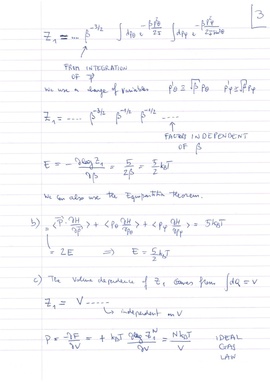 3
Z₁ = ... β^{-3/2} ∫ dp_θ e^{-β p_θ²/2I} ∫ dp_φ e^{-β p_φ²/2I sin²θ}
FROM INTEGRATION
OF P⃗
We use a change of variables p'_θ ≡ √β p_θ p'_φ ≡ √β p_φ
Z₁ = .... β^{-3/2} β^{-1/2} β^{-1/2} ....
FACTORS INDEPENDENT
OF β
E = - ∂log Z₁/∂β = 5/2β = 5/2 k_BT
We can also use the Equipartition Theorem.
b) <P⃗ · ∂H/∂P⃗> + <p_θ ∂H/∂p_θ> + <p_φ ∂H/∂p_φ> = 5k_BT
= 2E ⟹ E = 5/2 k_BT
c) The volume dependence of Z₁ comes from ∫dQ = V
Z₁ = V .....
↳ independent on V
P = -∂F/∂V = + k_BT ∂log Z₁^N/∂V = Nk_BT/V IDEAL
GAS
LAW